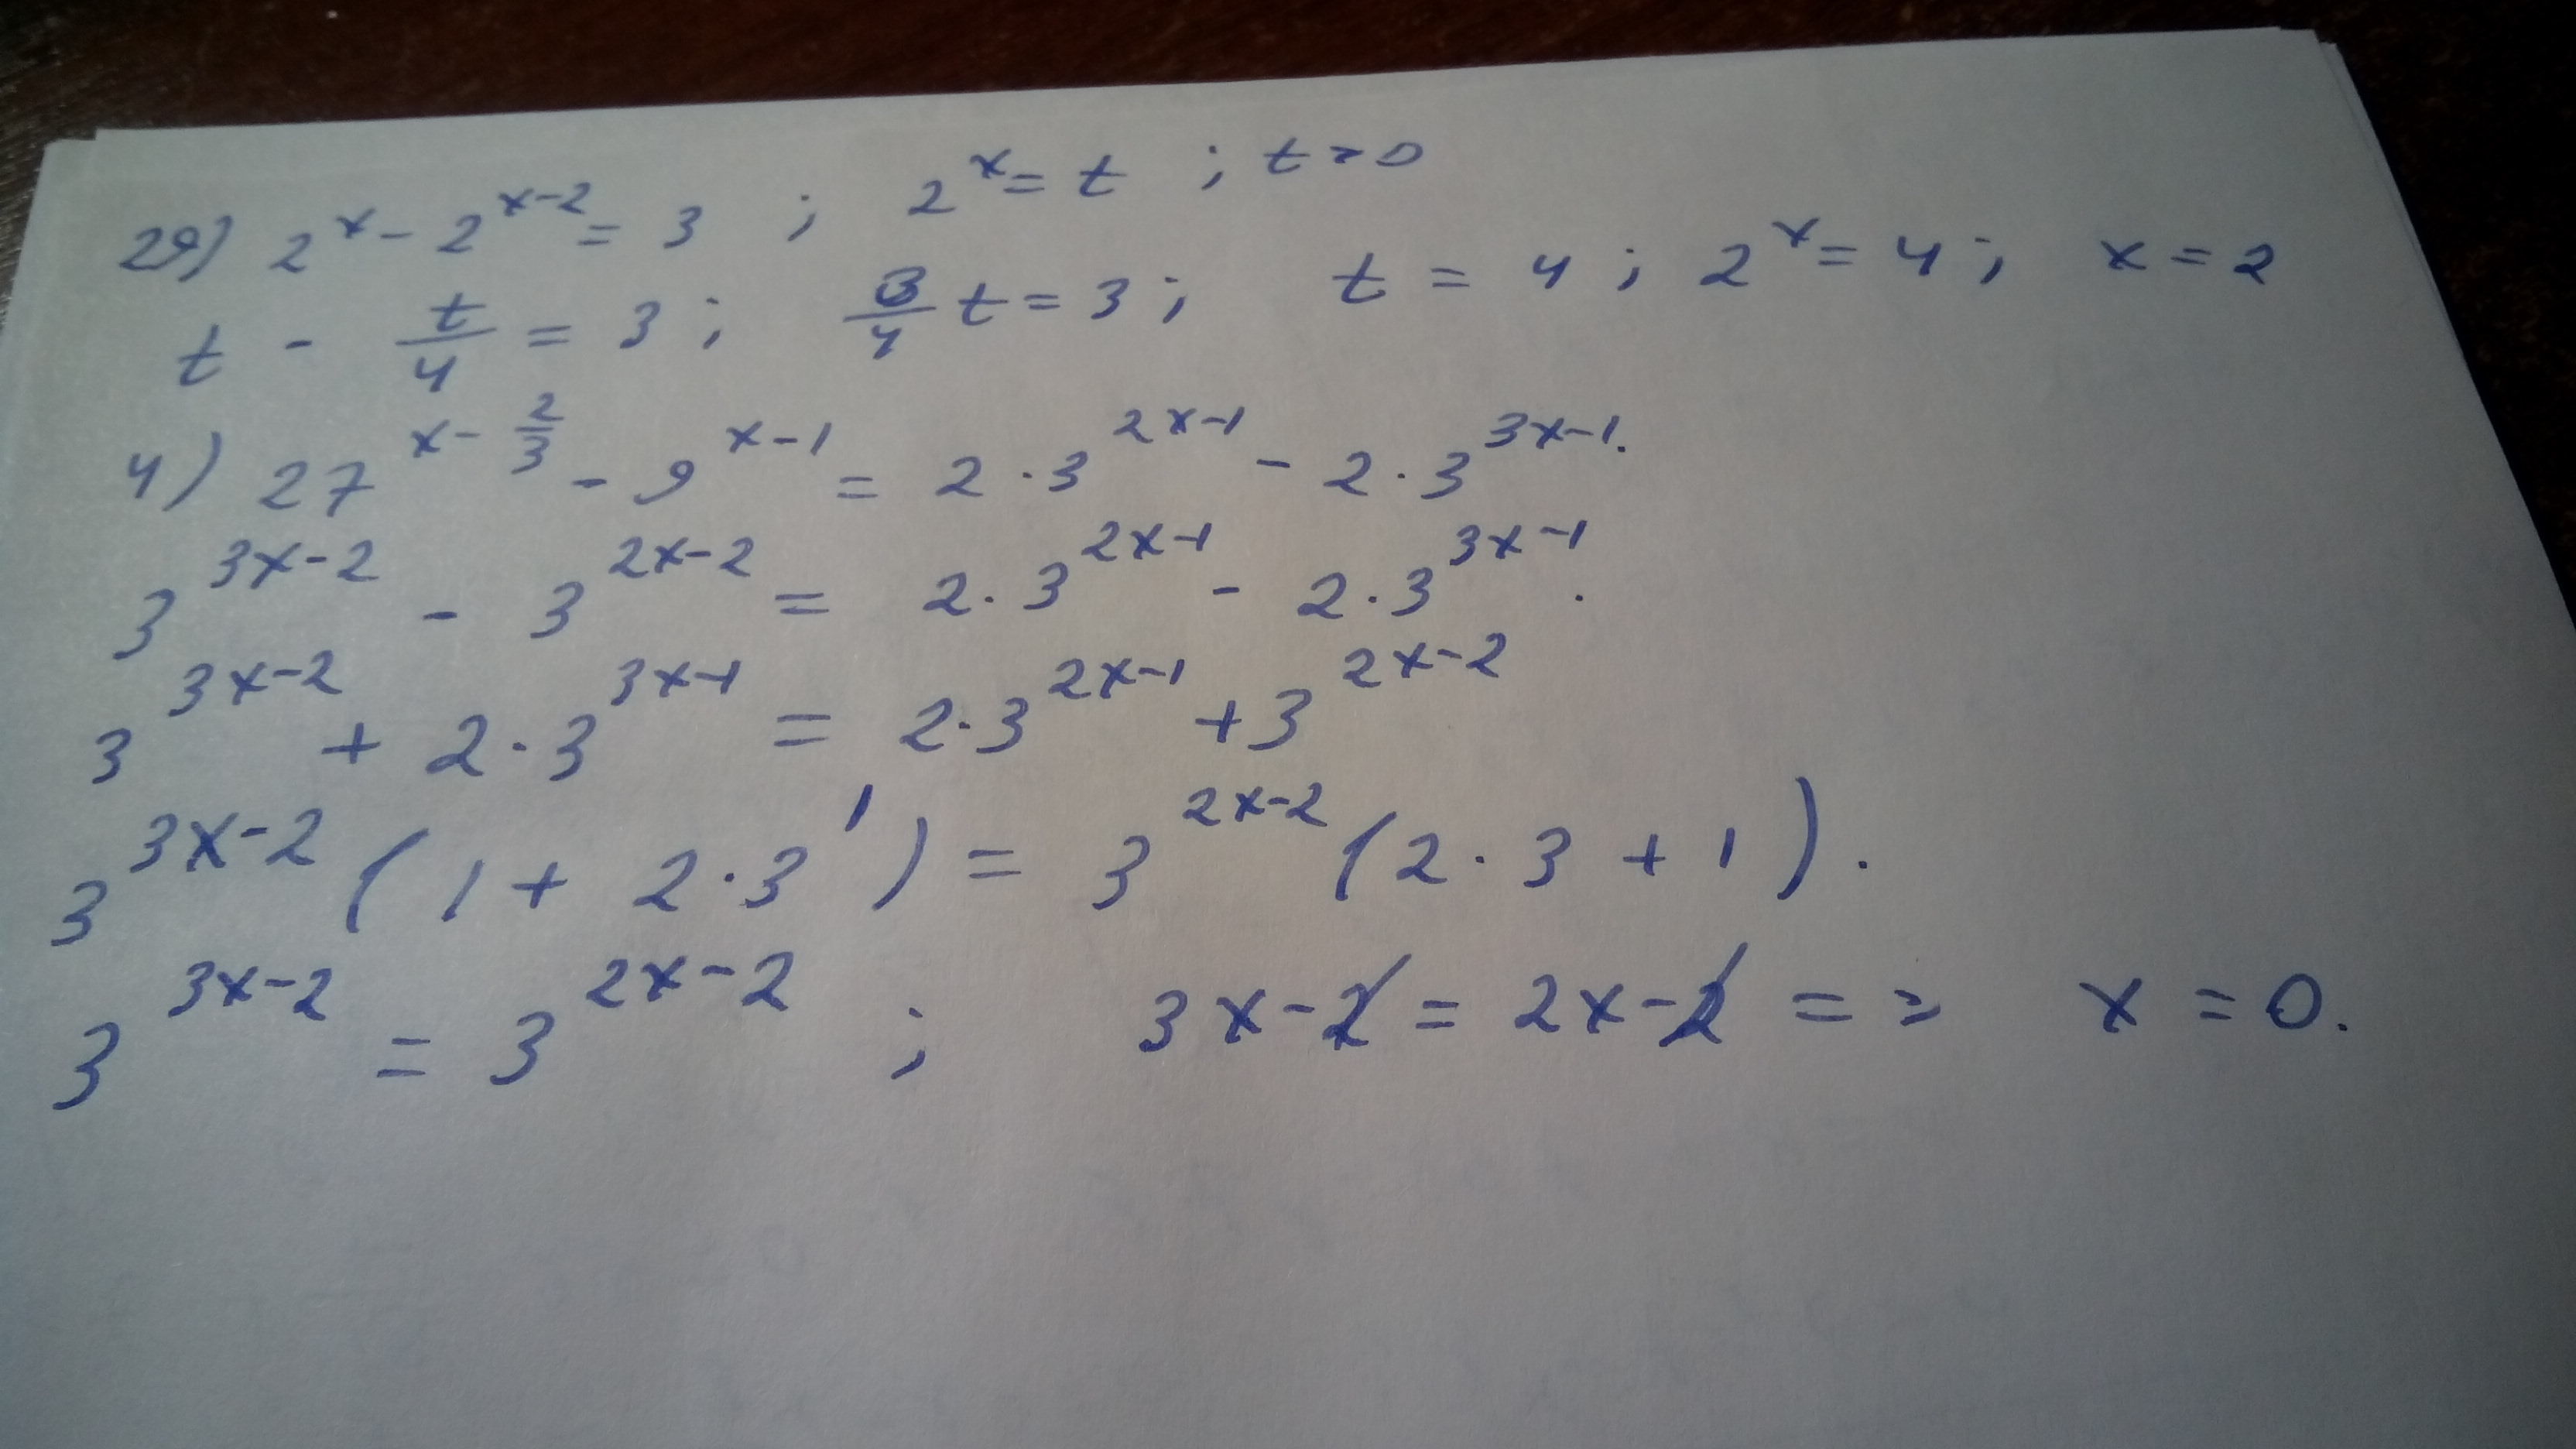 29) 2^x - 2^(x-2) = 3 ; 2^x = t ; t > 0
t - t/4 = 3 ; 3/4 t = 3 ; t = 4 ; 2^x = 4 ; x = 2
4) 27^(x - 2/3) - 9^(x-1) = 2 · 3^(2x-1) - 2 · 3^(3x-1).
3^(3x-2) - 3^(2x-2) = 2 · 3^(2x-1) - 2 · 3^(3x-1).
3^(3x-2) + 2 · 3^(3x-1) = 2 · 3^(2x-1) + 3^(2x-2)
3^(3x-2) (1 + 2 · 3^1) = 3^(2x-2) (2 · 3 + 1).
3^(3x-2) = 3^(2x-2) ; 3x - 2 = 2x - 2 => x = 0.